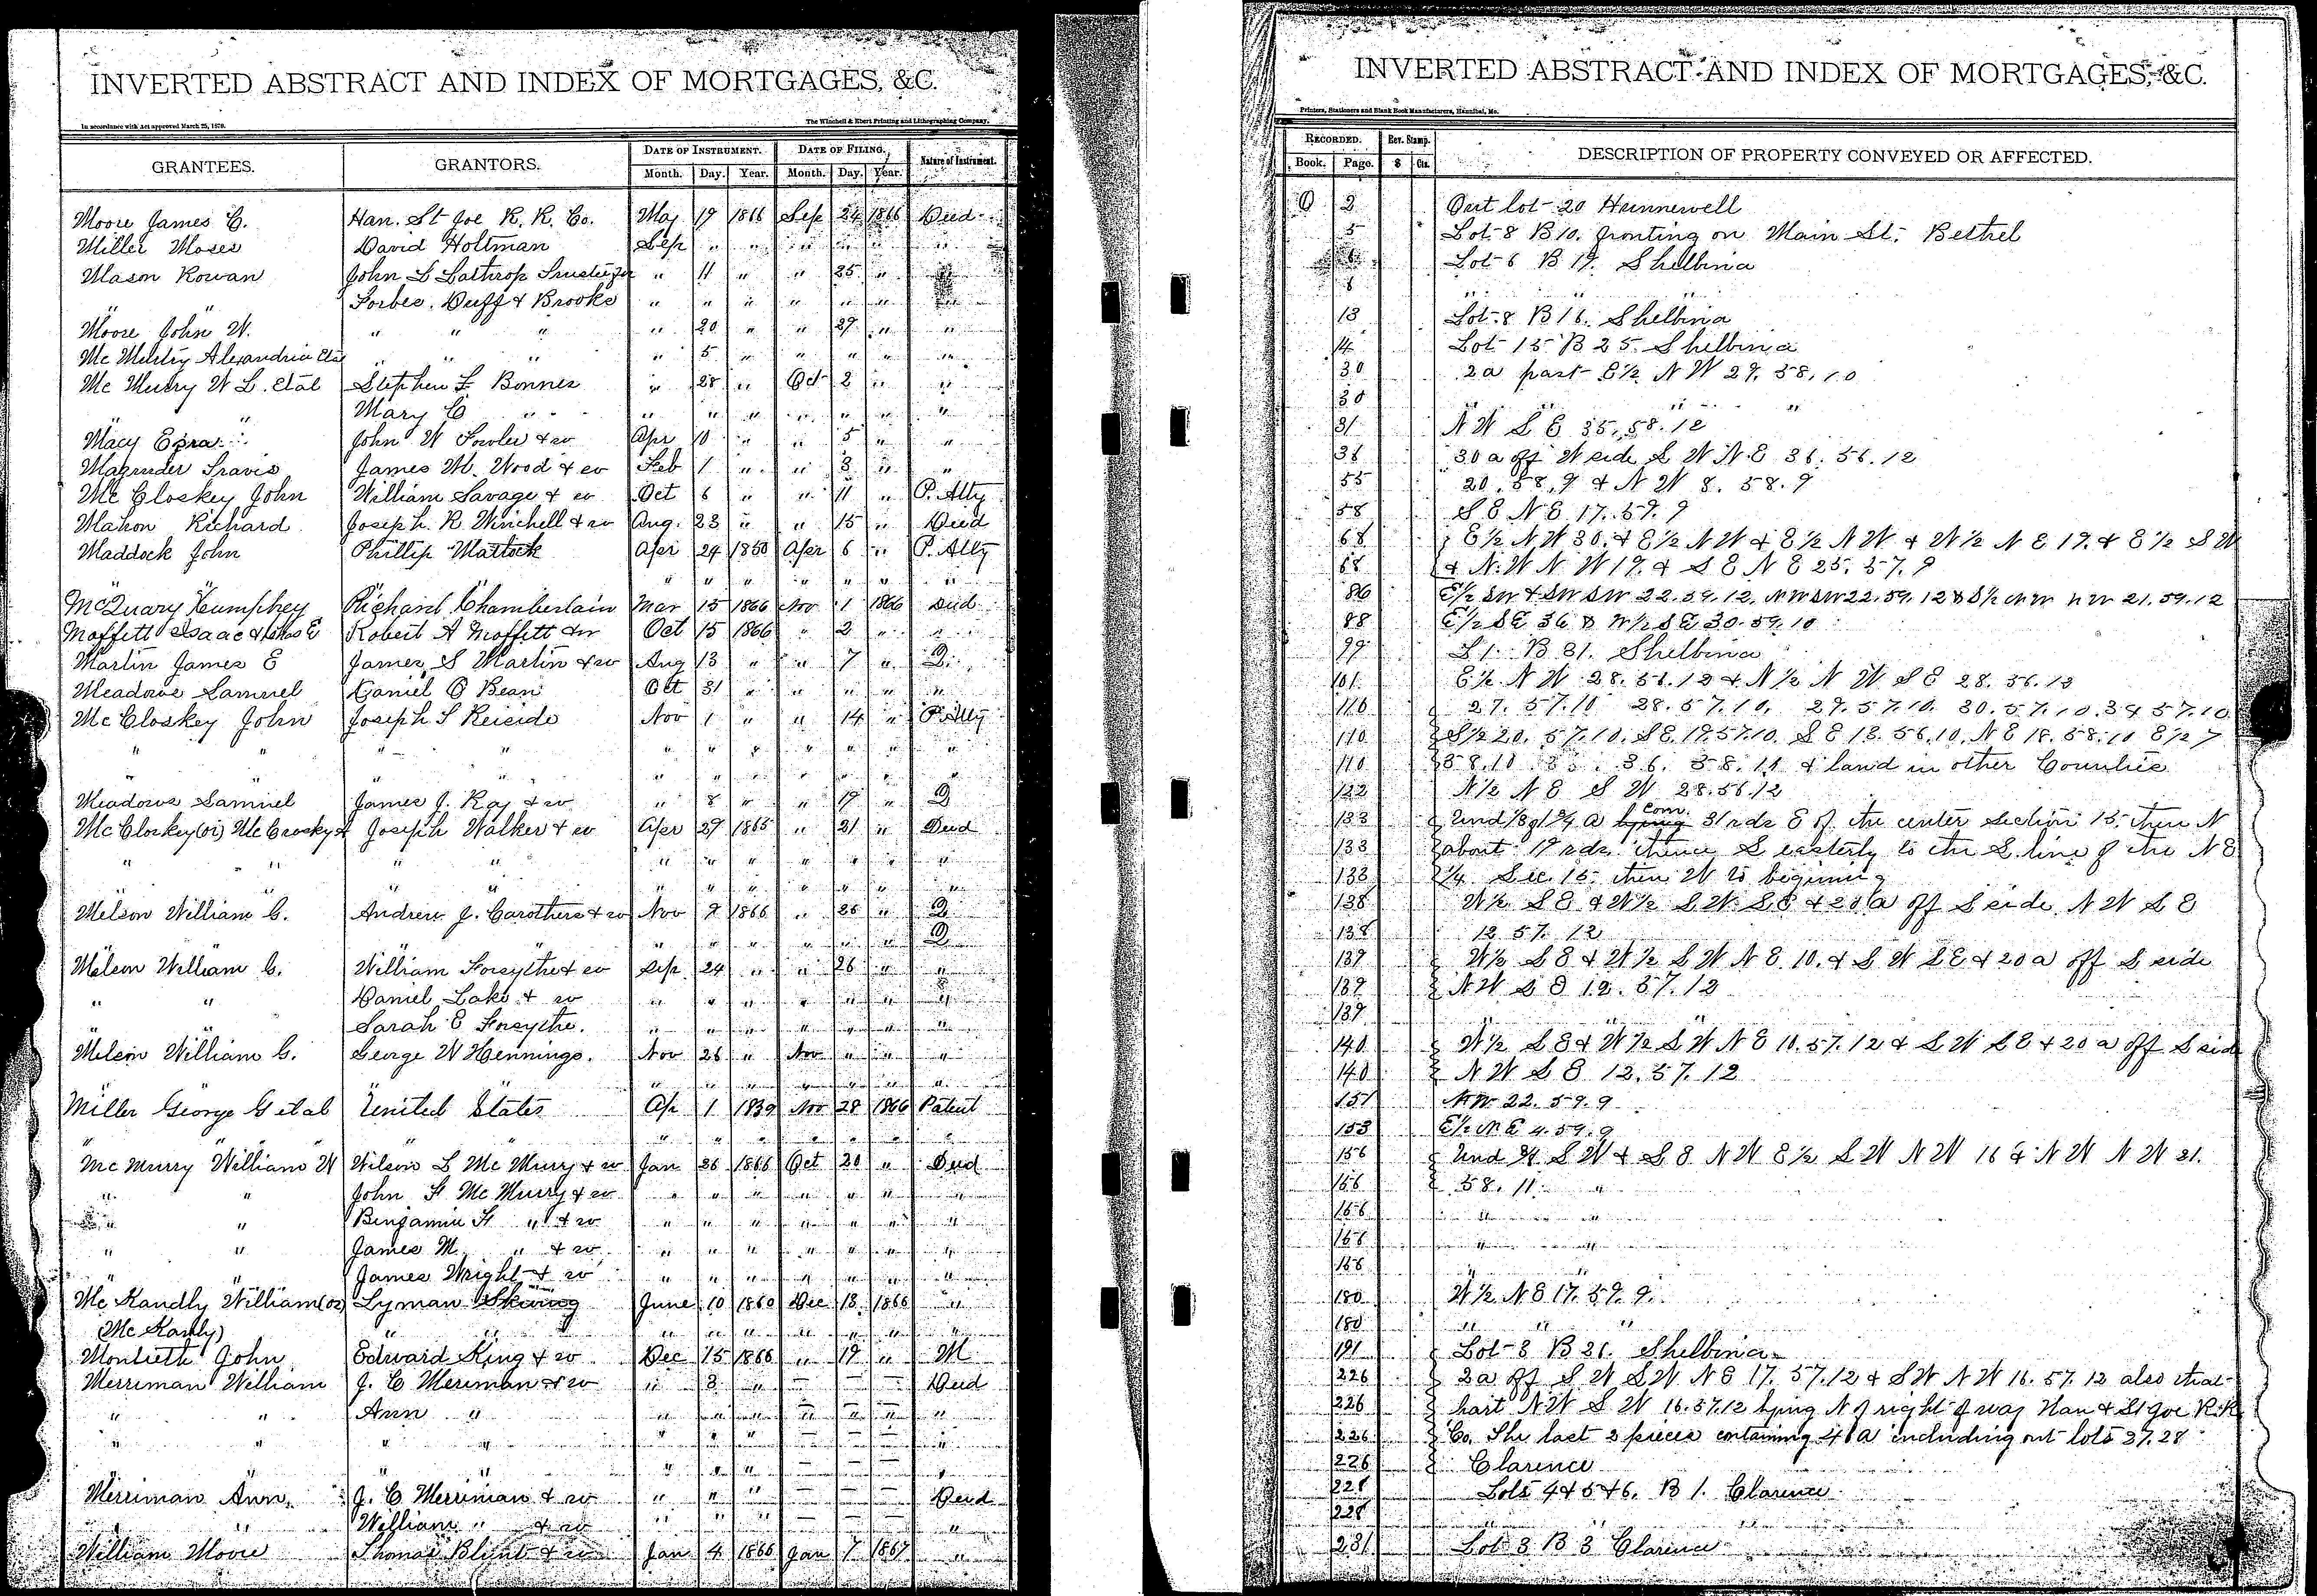 INVERTED ABSTRACT AND INDEX OF MORTGAGES, &C.
In accordance with Act approved March 25, 1870. The Winchell & Ebert Printing and Lithographing Company.
GRANTEES. GRANTORS. DATE OF INSTRUMENT. DATE OF FILING. Nature of Instrument.
Month. Day. Year. Month. Day. Year.
Moore James C. Han. St Joe R. R. Co. May 19 1866 Sep 24 1866 Deed
Miller Moses David Holtman Sep " " " " " "
Mason Rowan John L Lathrop Trustee for " 11 " " 25 "
" " Forbes. Duff & Brooks " " " " " " "
Moore John W. " " " " 20 " " 27 " "
Alexandria Etal " " " " 5 " " " " "
Mc Murry W L. Etal Stephen F Bonner " 28 " Oct 2 " "
" " Mary C " " " " " " " "
Macy Ezra John W Fowler & w Apr 10 " " 5 " "
Magruder Travis James M. Wood & w Feb 1 " " 3 " "
Mc Closkey John William Savage & w Oct 6 " " 11 " P. Atty
Mahon Richard Joseph R Winchell & w Aug. 23 " " 15 " Deed
Maddock John Phillip Matlock Apr 24 1850 Apr 6 " P. Atty
" " " " " " "
McQuary Humphey Richard Chamberlain Mar 15 1866 Nov 1 1866 Deed
Moffett Isaac & Robert A Moffett & w Oct 15 1866 " 2 " "
Martin James E James S Martin & w Aug 13 " " 7 " D
Meadows Samuel Daniel O Bean Oct 31 " " " " "
Mc Closkey John Joseph S Reiside Nov 1 " " 14 " P. Atty
" " " " " " " " " " "
" " " " " " " " " " "
Meadows Samuel James J. Ray & w " 8 " " 19 " D
Mc Closkey (or) Mc Crosky Joseph Walker & w Apr 29 1865 " 21 " Deed
" " " " " " " " " " "
" " " " " " " " "
Melson William C. Andrew J. Carothers & w Nov 9 1866 " 26 " D
" " " " " " D
Melson William C. William Forsythe & w Sep 24 " " 26 " "
" " Daniel Lake & w " " " " " " "
Sarah E Forsythe. " " " " " " "
Melson William C. George W Hennings. Nov 26 " Nov " " "
" " " " " " " "
Miller George G et al United States Ap 1 1839 Nov 28 1866 Patent
" " " " " " " "
Mc Murry William W Wilson L Mc Murry & w Jan 26 1866 Oct 20 " Deed
" " John F Mc Murry & w " " " " " " "
" " Benjamin F " & w " " " " " " "
" " James M. " & w " " " " " " "
" " James Wright & w " " " " " " "
Mc Kandly William (or) Lyman June 10 1860 Dec 13 1866 "
" " " " " " " " "
Monteith John Edward King & w Dec 15 1866 " 19 " M
Merriman William J. C Meriman & w " 3 " — — — Deed
" " Ann " " " " — — — "
" " " " " " " — — — "
" " " " " " — — — "
Merriman Ann. J. C Merriman & w " " " — — — Deed
" William " & w " " " — — — "
William Moore Thomas Blunt & w Jan 4 1866 Jan 7 1867 "
INVERTED ABSTRACT AND INDEX OF MORTGAGES, &C.
Printers, Stationers and Blank Book Manufacturers, Hannibal, Mo.
RECORDED. Rev. Stamp. DESCRIPTION OF PROPERTY CONVEYED OR AFFECTED.
Book. Page. $ Cts.
O 2 Out lot 20 Hunnewell
5 Lot 8 B 10. fronting on Main St. Bethel
6 Lot 6 B 19. Shelbina
8 " " "
13 Lot 8 B 16. Shelbina
14 Lot 15 B 25. Shelbina
30 2a part E½ N W 29. 58. 10
30 " " "
31 N W S E 35. 58. 12
36 30 a off W side S W N E 36. 56. 12
55 20. 58. 9 & N W 8. 58. 9
58 S E N E 17. 59. 9
68 E½ N W 30. & E½ N W & E½ N W & W½ N E 19. & E½ S W
68 & N. W N W 19. & S E N E 25. 57. 9
86 E½ SW & SW SW 22. 59. 12. NW SW 22. 59. 12 & S½ NW NW 21. 59. 12
88 E½ SE 36 & W½ SE 30. 59. 10
99 L 1. B 31. Shelbina
101 E½ N W 28. 56. 12 & N½ N W S E 28. 56. 12
110 27. 57. 10 28. 57. 10. 29. 57. 10. 30. 57. 10. 34 57. 10
110 S½ 20. 57. 10. S E. 19. 57. 10. S E 13. 56. 10. N E 18. 58. 10 E½ 7
110 58. 10 35. 36. 58. 11 & land in other Counties
122 N½ N E S W 28. 56. 12
133 Und ⅓ of ¾ a Com. 31 rds E of the center section 15. then N
133 about 19 rds thence S easterly to the S. line of the N E
133 ¼ Sec. 15. then W to begining
138 W½ S E & W½ S W. S E & 20 a off S side N W S E
138 12 57. 12
139 W½ S E & W½ S W N E 10. & S W S E & 20 a off S side
139 N W S E 12. 57. 12
139 " " " "
140 W½ S E & W½ S W N E 10. 57. 12 & S W S E & 20 a off S side
140 N W S E 12. 57. 12
151 NW 22. 59. 9
153 E½ NE 4. 59. 9
156 Und ¾ S W & S E N W E½ S W N W 16 & N W N W 21.
156 58. 11. "
156 " "
156 " "
156 " "
180 W½ N E 17. 59. 9.
180 " " "
191 Lot 3 B 26. Shelbina
226 2a off S W S W N E 17. 57. 12 & S W N W 16. 57. 12 also that
226 part N W S W 16. 57. 12 lying N of right of way Han & St Joe R. R.
226 Co. The last 2 pieces containing 41 a including out lots 27. 28
226 Clarence
228 Lots 4 & 5 & 6. B 1. Clarence
228 " "
231 Lot 3 B 3 Clarence